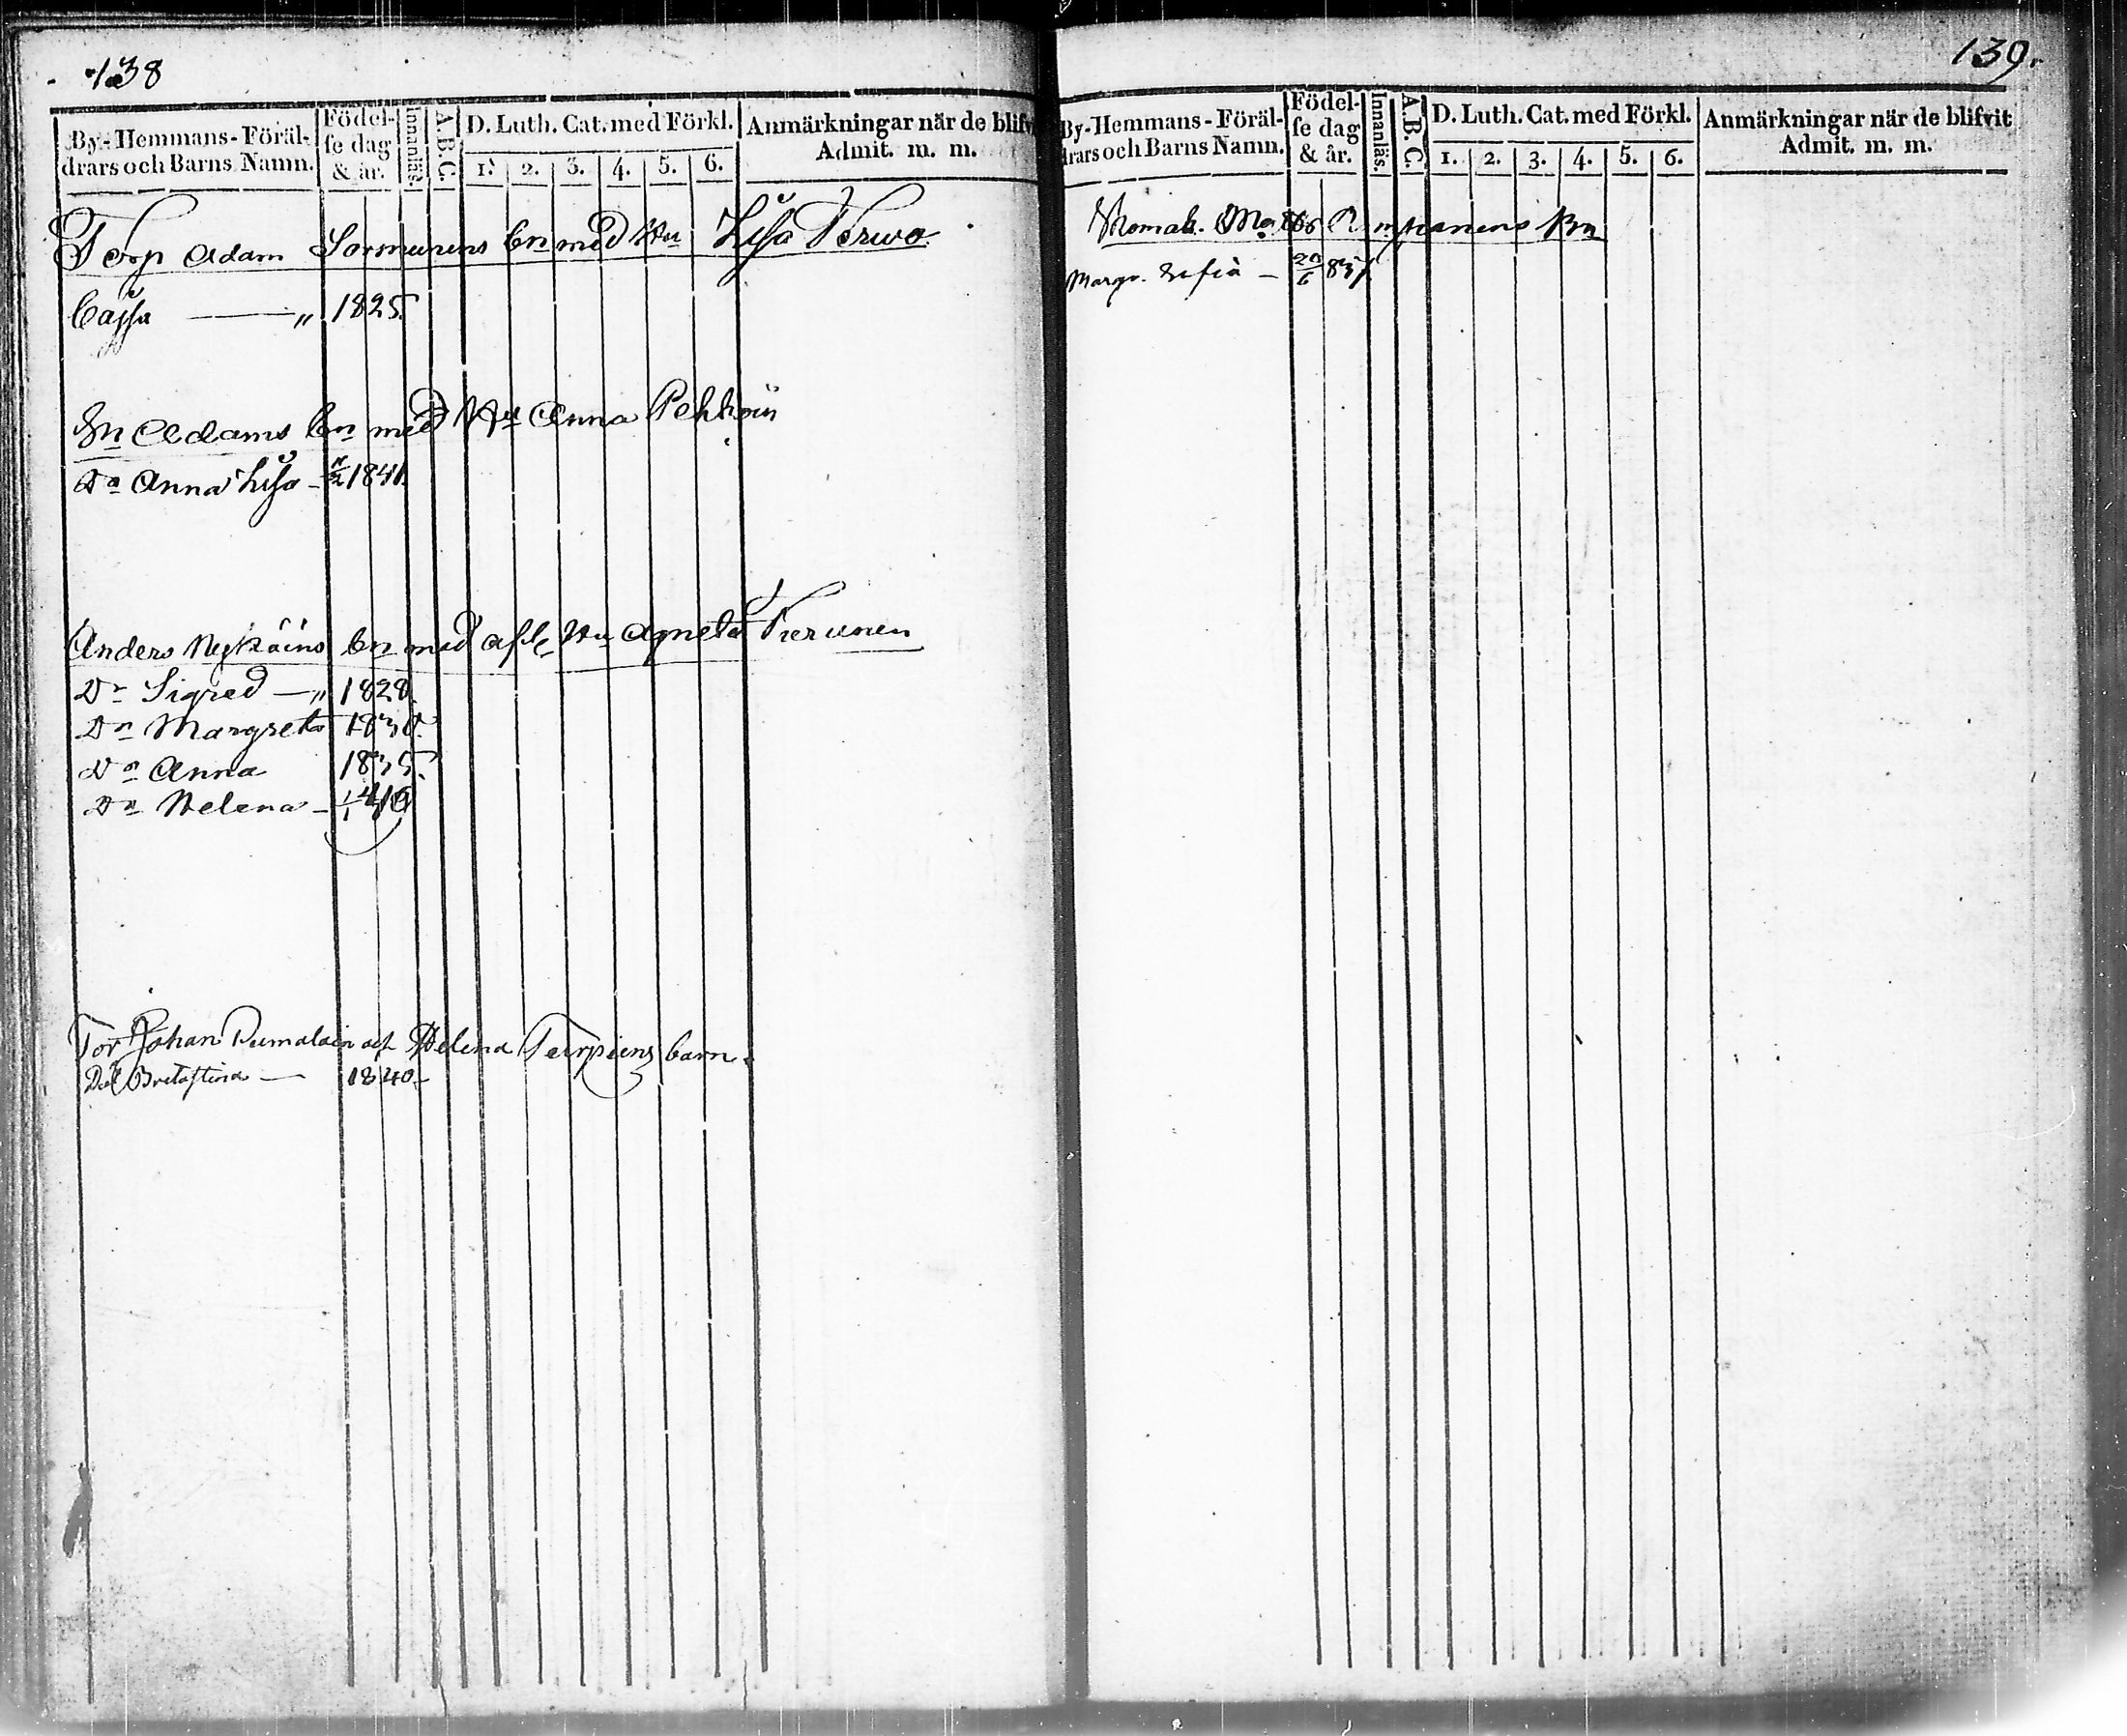 138
By-Hemmans-Föräl-
drars och Barns Namn.
Födel-
se dag
& år.
Innanläs.
A.B.C.
D. Luth. Cat. med Förkl.
1. 2. 3. 4. 5. 6.
Anmärkningar när de blifv
Admit. m. m.
Torp Adam Sormunens bn med Hu Lisa Terwo
Cajsa — „ 1825.
Adams bn med Hu Anna Pehkoin
Dr Anna Lisa - 1841.
Anders Nykäins bn med afl. Hu Agneta Tierunen
Dr Sigred — „ 1828.
Dr Margreta 1830.
Dr Anna 1835.
Dr Helena - 1/1 40
Tor Johan Pumalain och Helena Turpiens barn.
Dot Britastina — 1840.
139.
By-Hemmans-Föräl-
drars och Barns Namn.
Födel-
se dag
& år.
Innanläs.
A.B.C.
D. Luth. Cat. med Förkl.
1. 2. 3. 4. 5. 6.
Anmärkningar när de blifvit
Admit. m. m.
Bn
Margr. Sofia — 20/6 837.